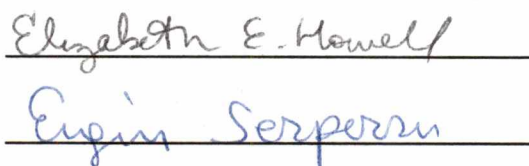 Elizabeth E. Howell
Engin Serpersu